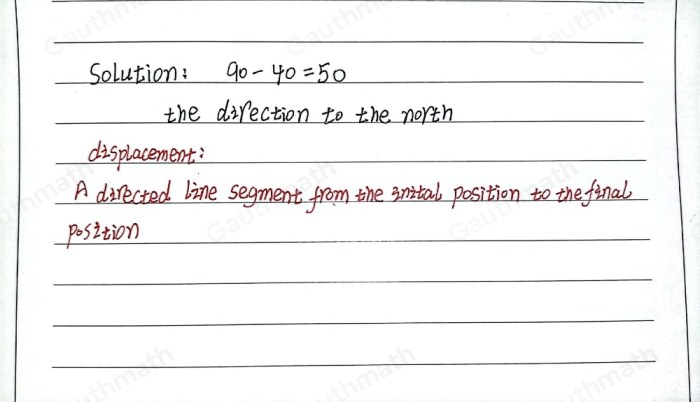 Solution: 90-40=50
the direction to the north
displacement:
A directed line segment from the inital position to the final
position